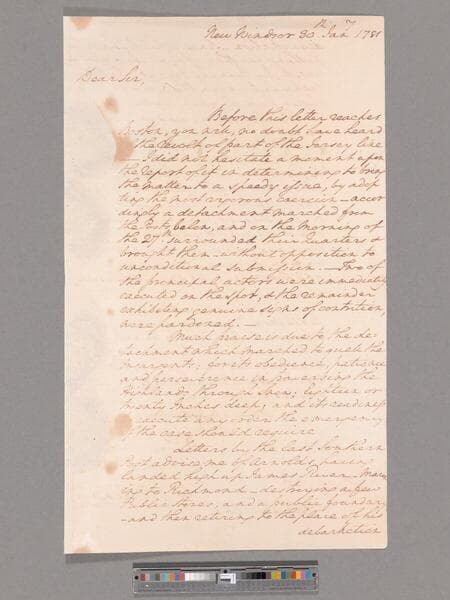 New Windsor 30th Jany 1781
Dear Sir,
Before this letter reaches
Boston, you will, no doubt have heard
the revolt of part of the Jersey line
— I did not hesitate a moment upon
the report of it in determining to bring
the matter to a speedy issue, by adop
ting the most vigorous coercion — accor
dingly a detachment marched from
the Posts below, and on the morning of
the 27th surrounded their quarters &
brought them without opposition to
unconditional submission. — Two of
the principal actors were immediately
executed on the spot, & the remainder
exhibiting genuine signs of contrition,
were pardoned. —
Much praise is due to the de
tachment which marched to quell the
insurgents; for its obedience, patience
and perseverence in traversing the
Highlands through Snow, Eighteen or
twenty Inches deep; and its readiness
execute any order the emergency
of the case should require
Letters by the last Southern
Post advise me of Arnolds having
landed high up James River — Marc
ing to Richmond — destroying a few
Public stores, and a public foundary
— and then retiring to the place of his
debarkation